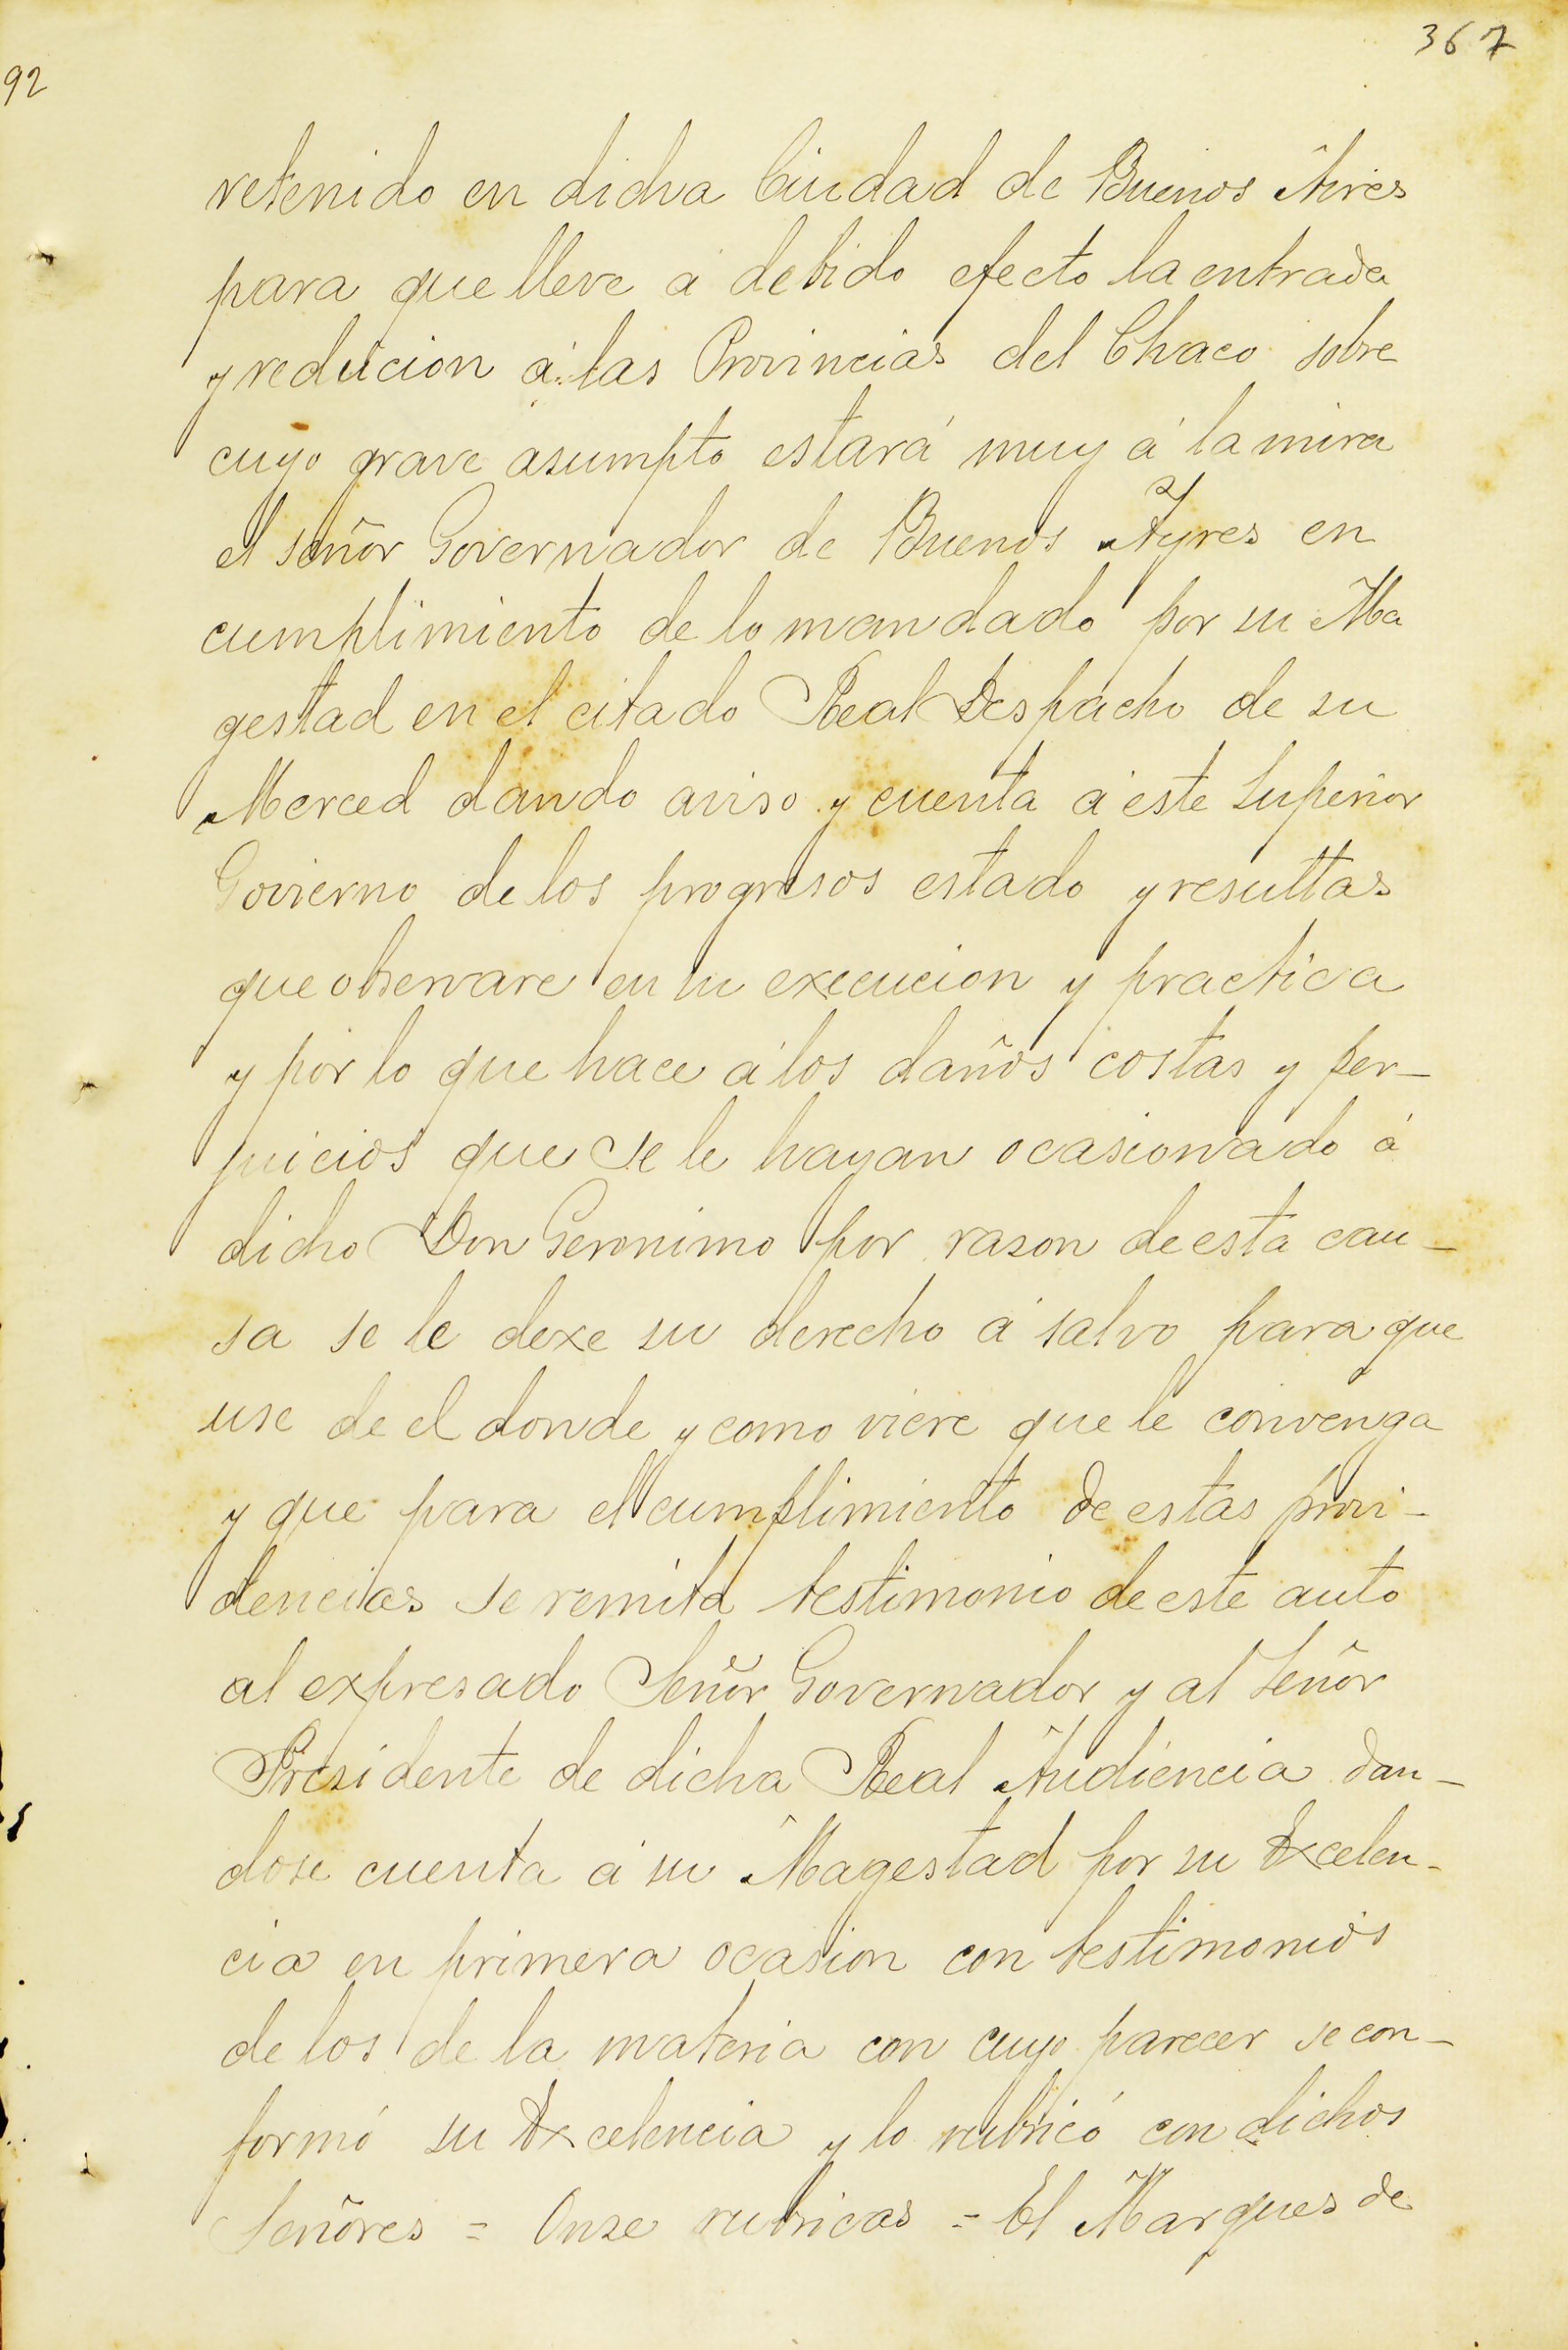 367
92
retenido en dicha Ciudad de Buenos Aires
para que lleve á debido efecto la entrada
y reducion á las Provincias del Chaco sobre
cuyo grave asumpto estará muy á la mira
el señor Governador de Buenos Ayres en
cumplimiento de lo mandado por su Ma
gestad en el citado Real Despacho de su
Merced dando aviso y cuenta á este Superior
Govierno de los progresos estado y resultas
que observare en su execucion y practica
y por lo que hace á los daños costas y per-
juicios que se le hayan ocasionado á
dicho Don Geronimo por rason de esta cau-
sa se le dexe su derecho á salvo para que
use de el donde y como viere que le convenga
y que para el cumplimiento de estas provi-
dencias se remita testimonio de este auto
al expresado Señor Governador y al Señor
Presidente de dicha Real Audiencia dan-
dose cuenta á su Magestad por su Excelen-
cia en primera ocasion con testimonios
de los de la materia con cuyo parecer se con-
formó su Excelencia y lo rubricó con dichos
Señores = Onse rubricas = El Marques de